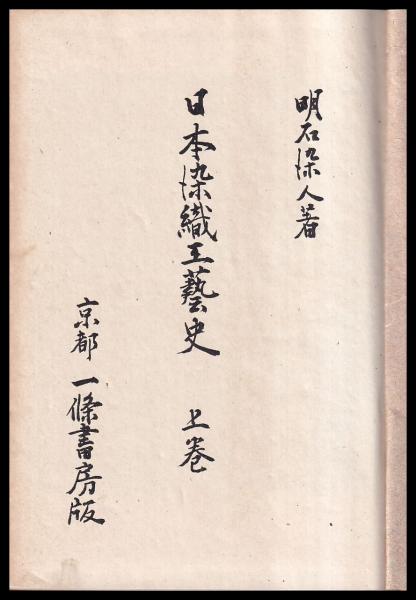 明石染人著
日本染織工藝史 上巻
京都 一條書房版